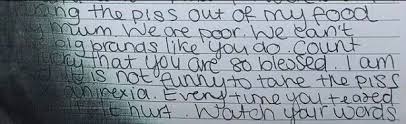 the piss out of my food
mum. We are poor. We can't
big brands like you do. Count
that you are so blessed. I am
is not funny to take the piss
anirexia. Every time you teased
it hurt. Watch your words